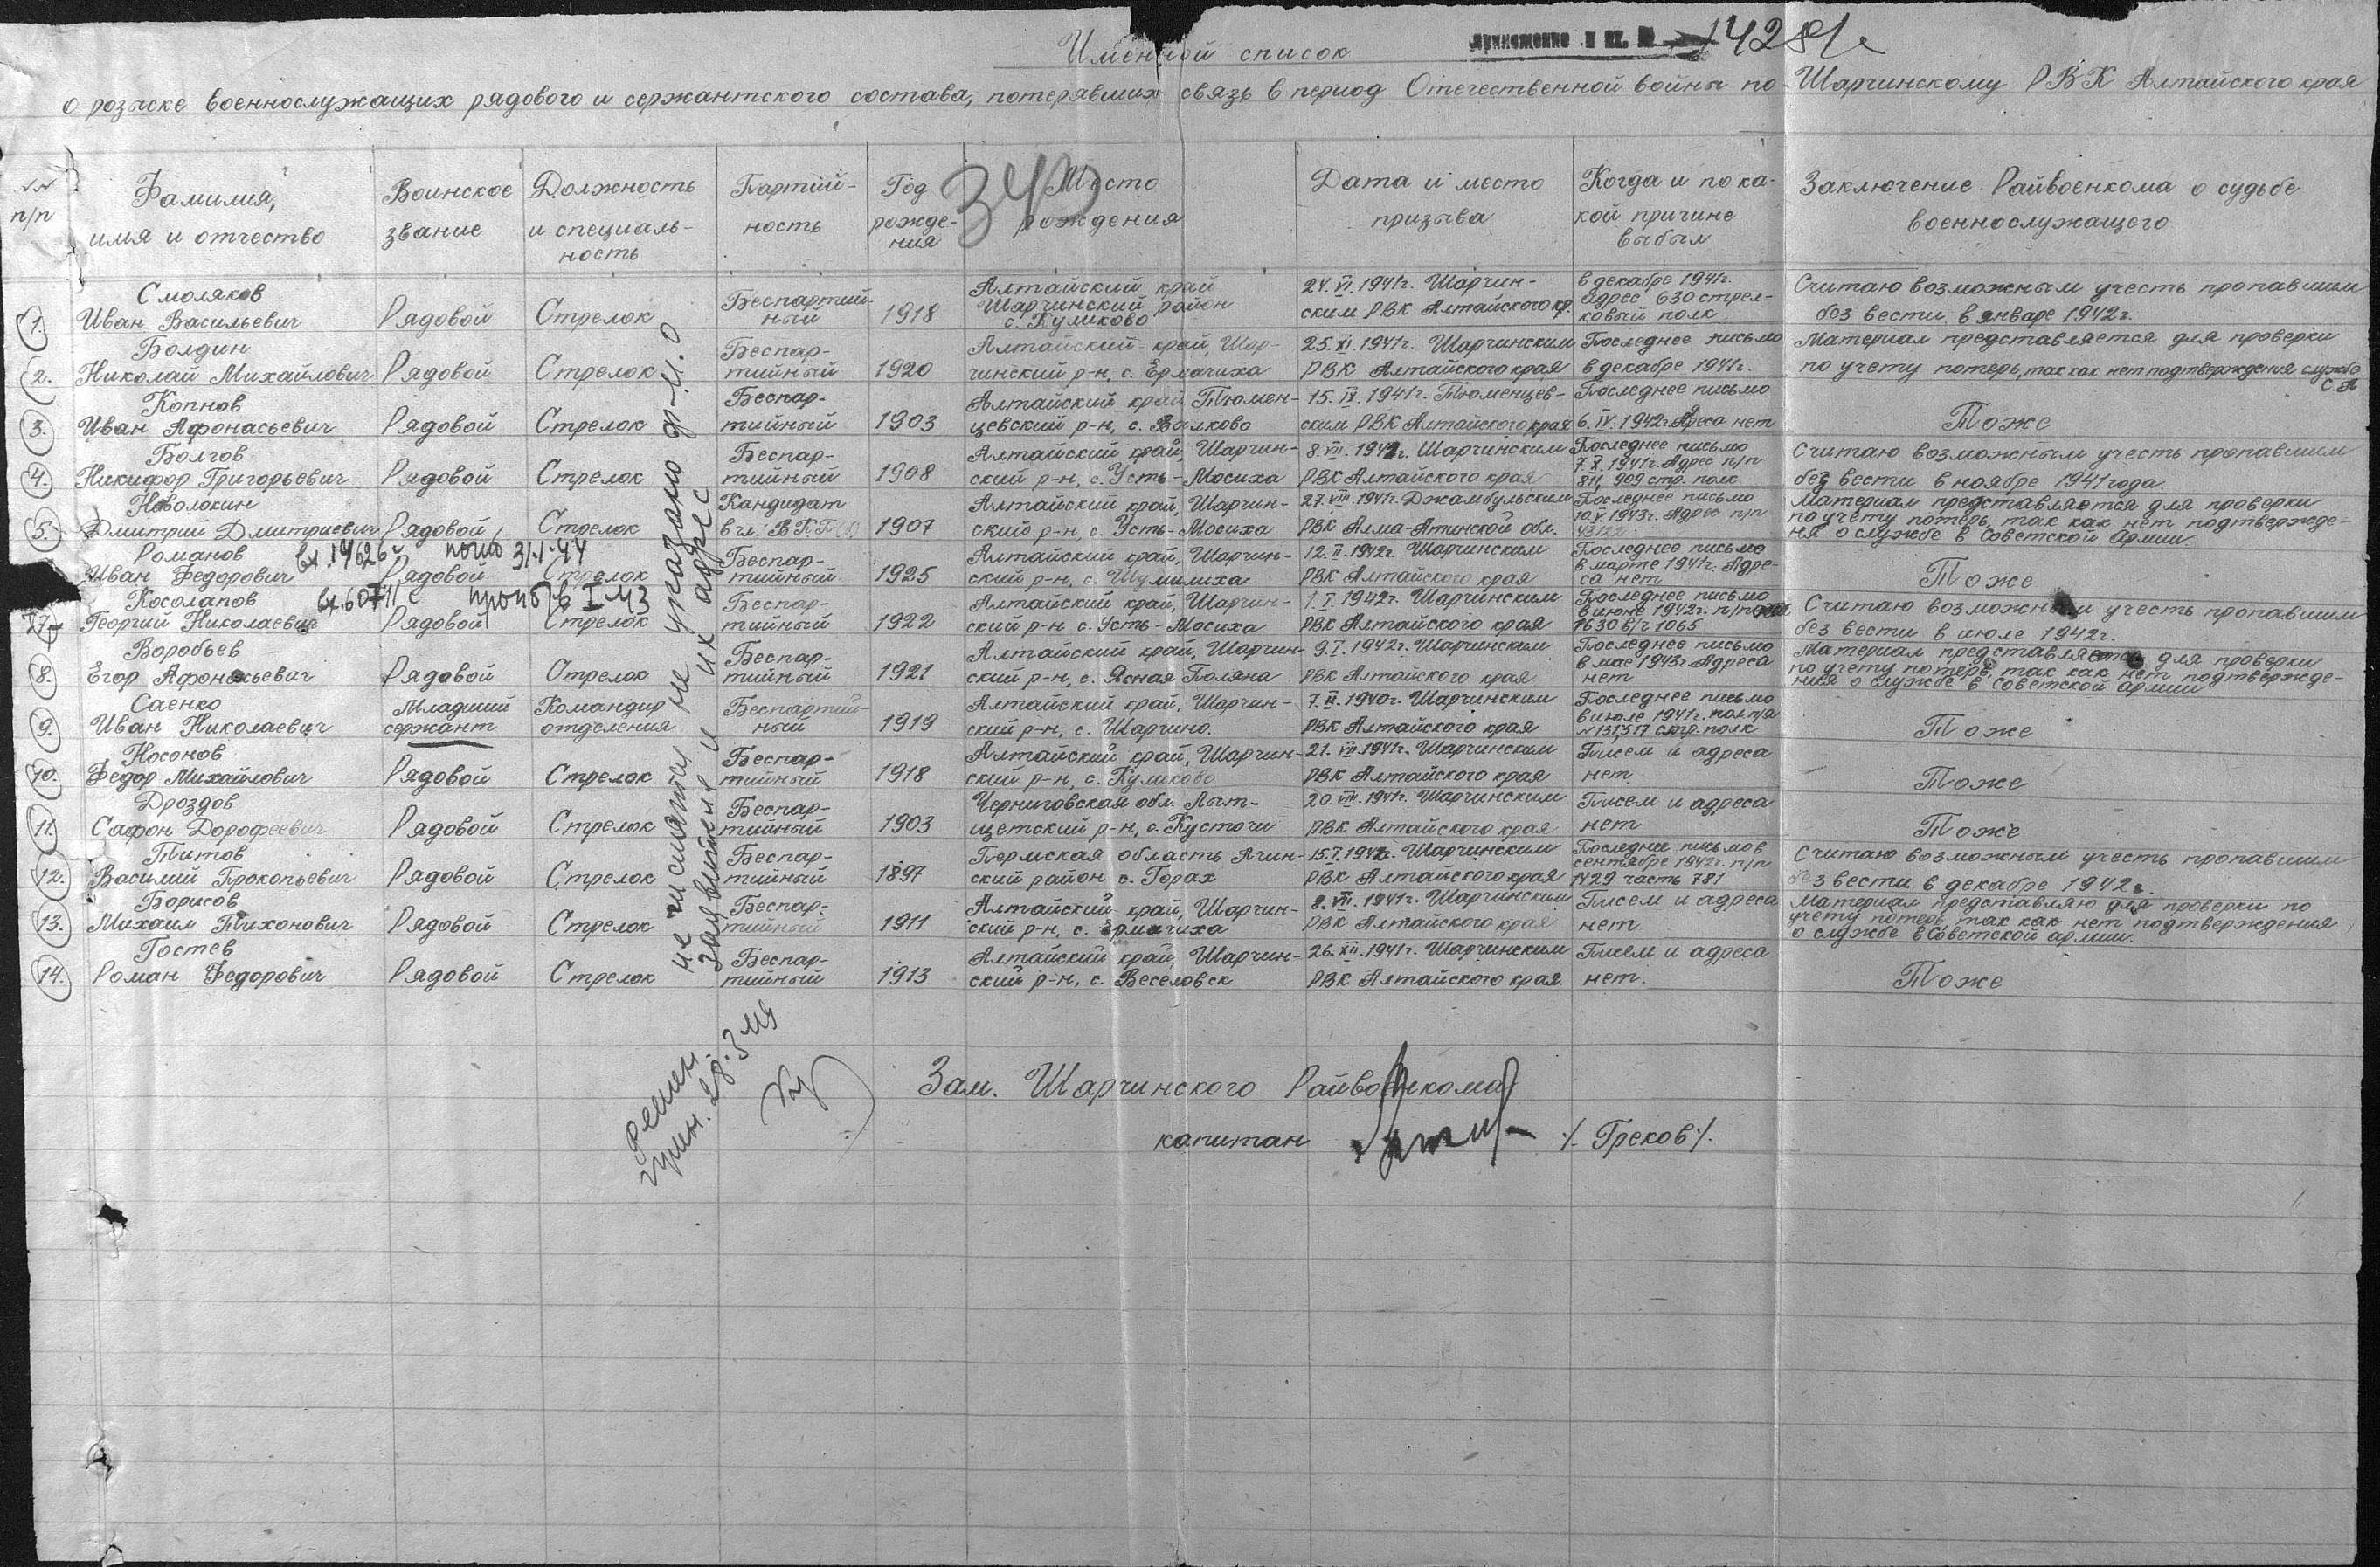 Именной список
приложение к вх. №
1428
о розыске военнослужащих рядового и сержантского состава, потерявших связь в период Отечественной войны по Шарчинскому РВК Алтайского края
№№ п/п
Фамилия, имя и отчество
Воинское звание
Должность и специаль-ность
Партий-ность
Год рожде-ния
340
Место рождения
Дата и место призыва
Когда и по ка-кой причине выбыл
Заключение Райвоенкома о судьбе военнослужащего
1. Смоляков Иван Васильевич Рядовой Стрелок Беспартий-ный 1918 Алтайский край Шарчинский район с. Куликово 24.VI.1941г. Шарчин-ским РВК Алтайского кр. в декабре 1941г. адрес 630 стрел-ковый полк Считаю возможным учесть пропавшим без вести в январе 1942г.
2. Болдин Николай Михайлович Рядовой Стрелок Беспар-тийный 1920 Алтайский край, Шар-чинский р-н, с. Ермачиха 25.XI.1941г. Шарчинским РВК Алтайского края Последнее письмо в декабре 1941г. Материал представляется для проверки по учету потерь, так как нет подтверждения службе С.А
3. Копнов Иван Афонасьевич Рядовой Стрелок Беспар-тийный 1903 Алтайский край Тюмен-цевский р-н, с. Валково 15.IX.1941г. Тюменцев-ским РВК Алтайского края Последнее письмо 6.IV.1942г. Адреса нет Тоже
4. Болгов Никифор Григорьевич Рядовой Стрелок Беспар-тийный 1908 Алтайский край, Шарчин-ский р-н, с. Усть-Мосиха 8.VII.1941г. Шарчинским РВК Алтайского края Последнее письмо 7.X.1941г. Адрес п/п 811, 909 стр. полк Считаю возможным учесть пропавшим без вести в ноябре 1941года.
5. Новолокин Дмитрий Дмитриевич Рядовой Стрелок Кандидат в чл. ВКП(б) 1907 Алтайский край, Шарчин-ский р-н, с. Усть-Мосиха 27.VIII.1941г. Джамбульским РВК Алма-Атинской обл. Последнее письмо 10.V.1943г. Адрес п/п 43122 Материал представляются для проверки по учету потерь, так как нет подтвержде-ня о службе в Советской Армии.
Романов Иван Федорович вх. 14626с погиб 31.1.44 Рядовой Стрелок Беспар-тийный 1925 Алтайский край, Шарчин-ский р-н, с. Шумилиха 12.II.1942г. Шарчинским РВК Алтайского края Последнее письмо в марте 1941г. Адре-са нет Тоже
7. Косолапов Георгий Николаевич вх. 60711с проп б/в I-43 Рядовой Стрелок Беспар-тийный 1922 Алтайский край, Шарчин-ский р-н с. Усть-Мосиха 1.I.1942г. Шарчинским РВК Алтайского края Последнее письмо в июне 1942г. п/п 1630 в/ч 1065 Считаю возможным учесть пропавшим без вести в июле 1942г.
8. Воробьев Егор Афонасьевич Рядовой Стрелок Беспар-тийный 1921 Алтайский край, Шарчин-ский р-н, с. Ясная Поляна 9.I.1942г. Шарчинским РВК Алтайского края Последнее письмо в мае 1943г. Адреса нет Материал представляется для проверки по учету потерь, так как нет подтвержде-ния о службе в Советской армии
9. Саенко Иван Николаевич Младший сержант Командир отделения Беспартий-ный 1919 Алтайский край, Шарчин-ский р-н, с. Шарчино. 7.II.1940г. Шарчинским РВК Алтайского края Последнее письмо в июле 1941г. пол п/я №131517 стр. полк Тоже
10. Носонов Федор Михайлович Рядовой Стрелок Беспар-тийный 1918 Алтайский край, Шарчин-ский р-н, с. Куликово 21.VII.1941г. Шарчинским РВК Алтайского края Писем и адреса нет Тоже
11. Дроздов Сафон Дорофеевич Рядовой Стрелок Беспар-тийный 1903 Черниговская обл. Лыт-щетский р-н, с. Кусточи 20.VIII.1941г. Шарчинским РВК Алтайского края Писем и адреса нет Тоже
12. Титов Василий Прокопьевич Рядовой Стрелок Беспар-тийный 1897 Пермская область Ачин-ский район с. Горах 15.I.1942г. Шарчинским РВК Алтайского края Последнее письмо в сентябре 1942г. п/п 1429 часть 781 Считаю возможным учесть пропавшим без вести в декабре 1942г.
13. Борисов Михаил Тихонович Рядовой Стрелок Беспар-тийный 1911 Алтайский край, Шарчин-ский р-н, с. Ермачиха 8.VII.1941г. Шарчинским РВК Алтайского края Писем и адреса нет Материал представляю для проверки по учету потерь, так как нет подтверждения о службе в Советской армии.
14. Гостев Роман Федорович Рядовой Стрелок Беспар-тийный 1913 Алтайский край, Шарчин-ский р-н, с. Веселовск 26.XII.1941г. Шарчинским РВК Алтайского края. Писем и адреса нет. Тоже
не числятся не указано ф-и.о
заявителя и их адрес
Зам. Шарчинского Райвоенкома
капитан /Греков/.